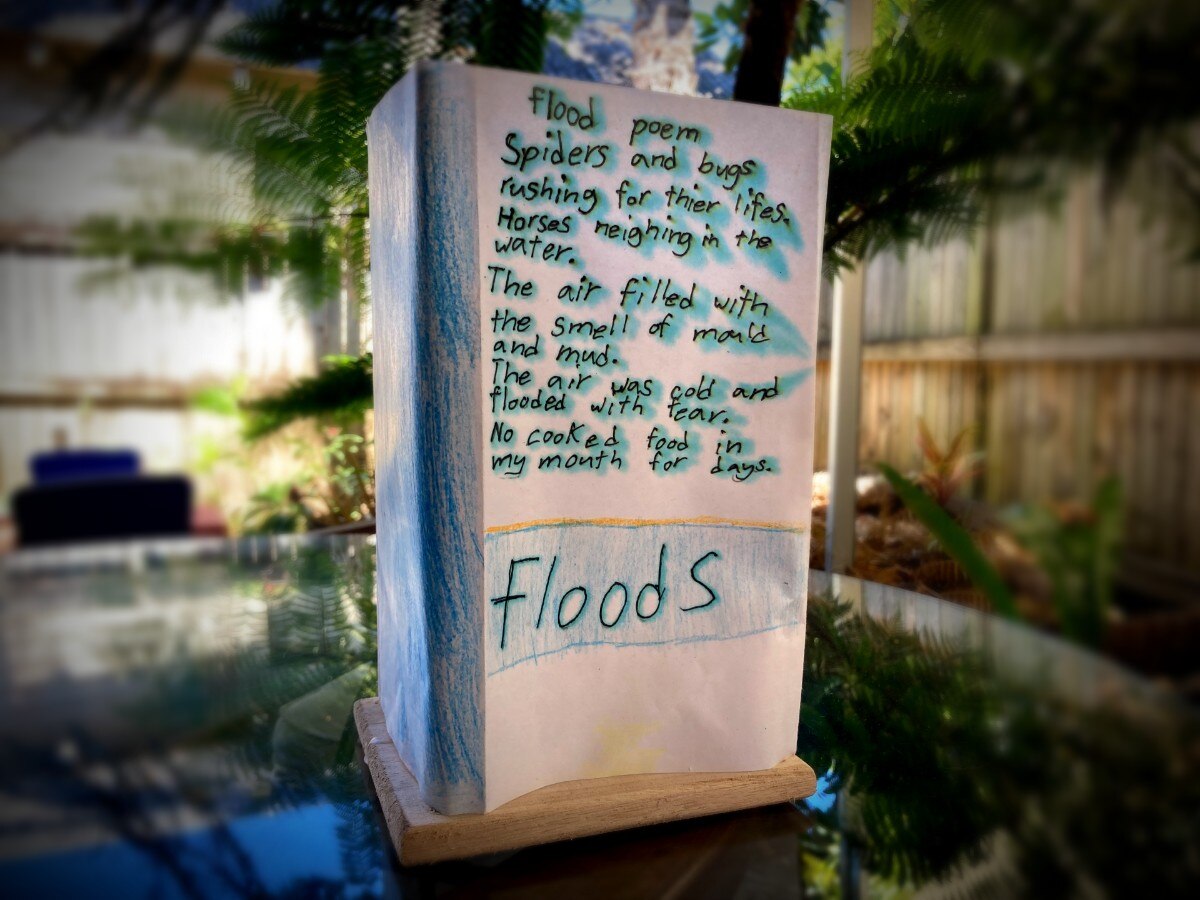 flood poem
Spiders and bugs
rushing for thier lifes.
Horses neighing in the
water.
The air filled with
the smell of mould
and mud.
The air was cold and
flooded with fear.
No cooked food in
my mouth for days.
Floods